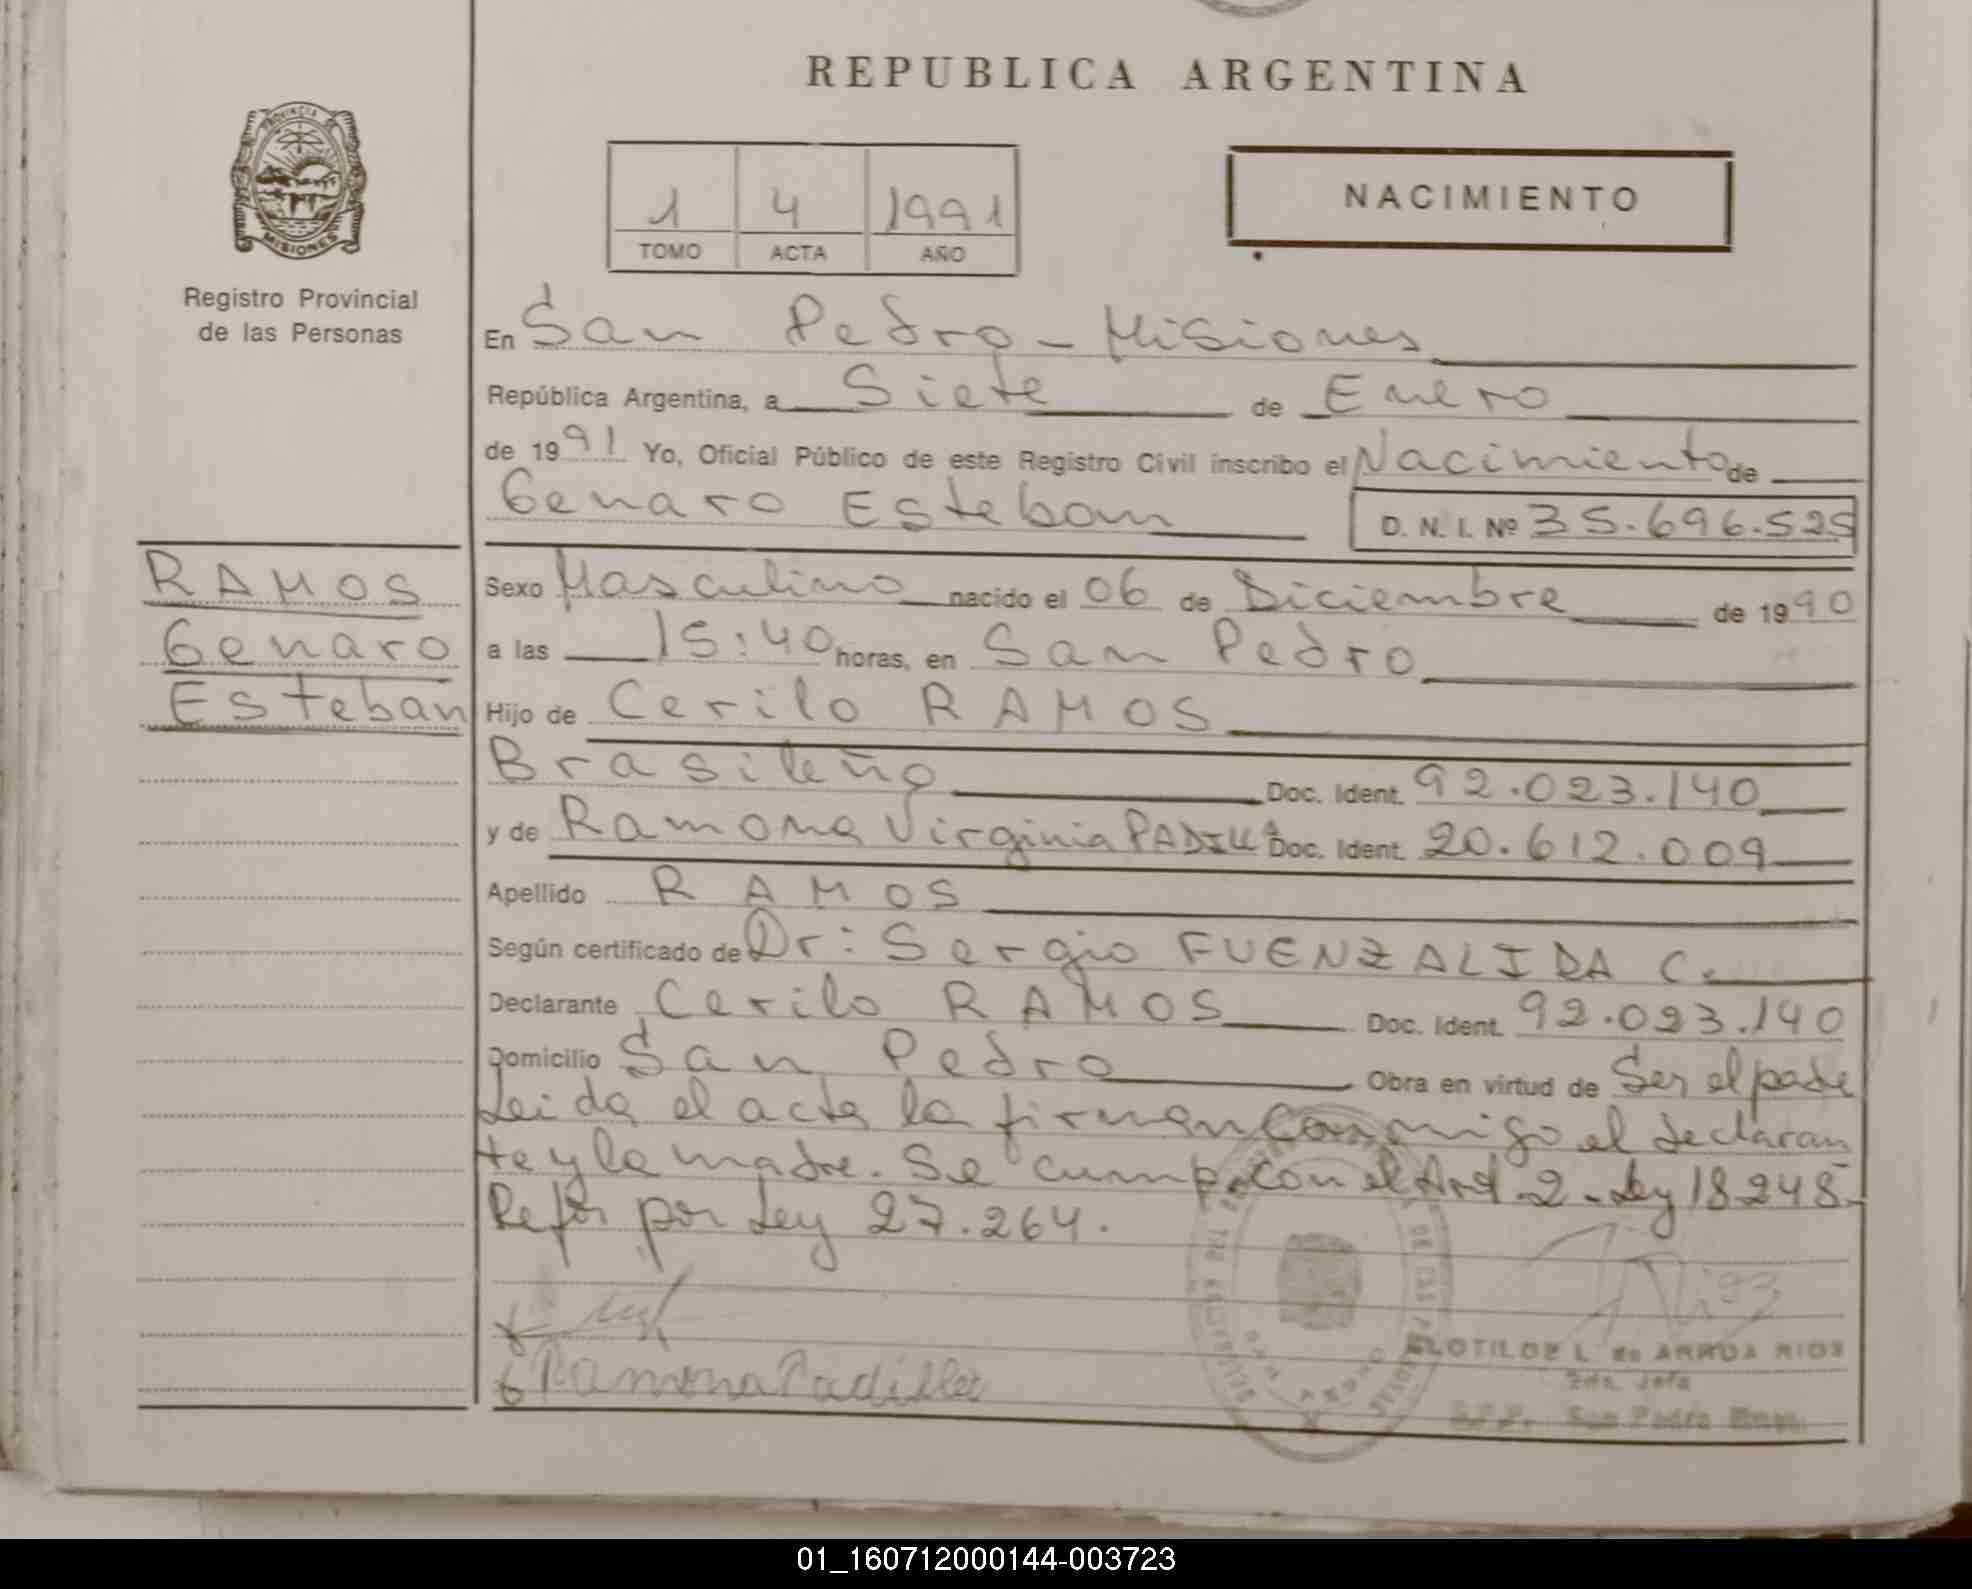 REPUBLICA ARGENTINA
PROVINCIA DE
MISIONES
Registro Provincial
de las Personas
1 4 1991
TOMO ACTA AÑO
NACIMIENTO
En San Pedro - Misiones
República Argentina, a Siete de Enero
de 1991 Yo, Oficial Público de este Registro Civil inscribo el Nacimiento de
Genaro Esteban D. N. I. Nº 35.696.525
RAMOS
Genaro
Esteban
Sexo Masculino nacido el 06 de Diciembre de 1990
a las 15:40 horas, en San Pedro
Hijo de Cerilo RAMOS
Brasileño Doc. Ident. 92.023.140
y de Ramona Virginia PADILLA Doc. Ident. 20.612.009
Apellido RAMOS
Según certificado de Dr: Sergio FUENZALIDA C.
Declarante Cerilo RAMOS Doc. Ident. 92.023.140
Domicilio San Pedro Obra en virtud de Ser el padre
Leida el acta la firman conmigo el declaran
te y la madre. Se cump. con el Art. 2 - Ley 18248-
Refor por Ley 27.264.
Ramona Padilla
CLOTILDE L. de ARRUA RIOS
2da. Jefa
San Pedro
01_160712000144-003723